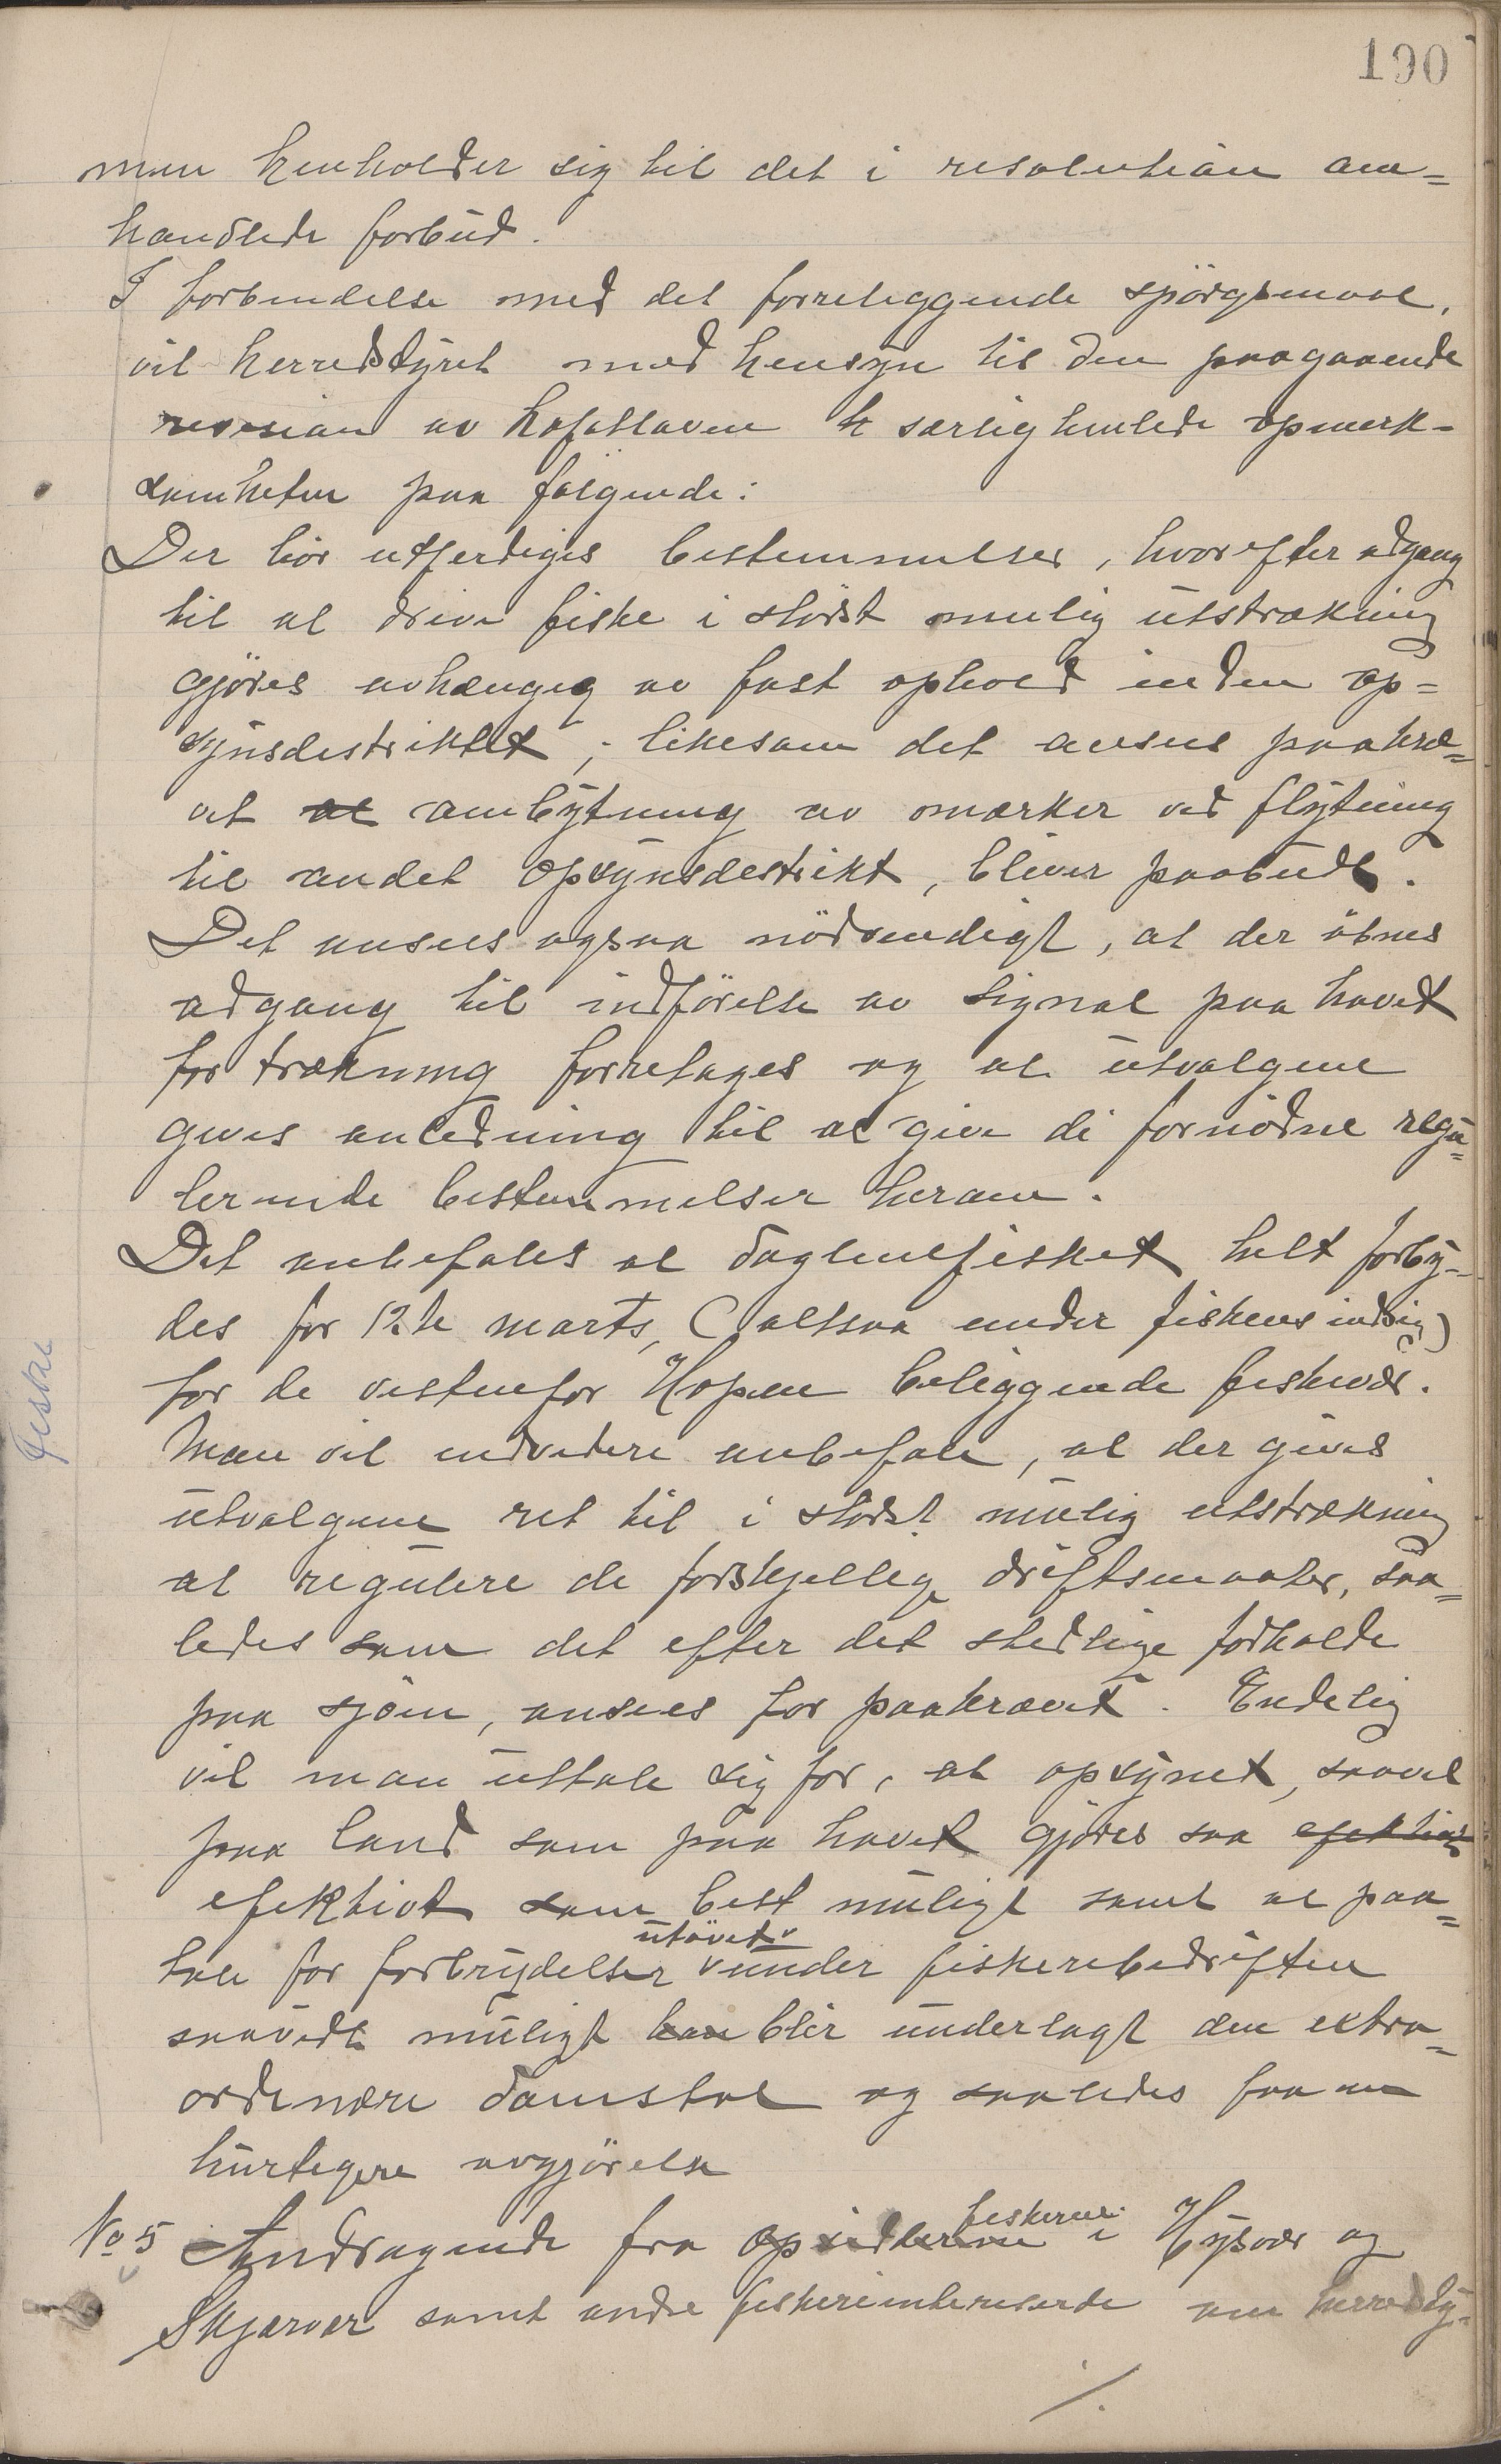 190
man henholder sig til det i resolution om=
handlede forbud.
I forbindelse med det foreliggende spörgsmaal,
vil herredstyret med hensyn til den paagaaende
revision av Lofotloven særlig henlede opmerk-
somheten paa følgende:
Der bör utferdiges bestemmelser, hvorefter adgang
til at drive fiske i störst mulig utstrækning
gjöres avhængig av fast ophold inden op=
synsdistriktet, likesom det ansees paakræ=
vet at ombytning av mærker ved flytning
til andet opsynsdistrikt, bliver paabudt.
Det ansees ogsaa nödvendigt, at der åbnes
adgang til indförelse av signal paa havet
for trækning foretages og at utvalgene
gives anledning til at give de fornödne regu=
lerende bestemmelser herom.
Det anbefales at daglinefisket helt forby=
des for 12te marts, (altsaa under fiskens indsig)
for de vestenfor Hopen beliggende fiskevær.
Man vil endvidere anbefale, at der gives
utvalgene ret til i störst mulig utstrækning
at regulere de forskjellige driftsmaater, saa=
ledes som det efter det stedlige forholde
paa sjöen, ansees for paakrævet. Endelig
vil man uttale sig for, at opsynet, saavel
paa land som paa havet gjöres saa efektivt
efektivt som best muligt samt at paa=
tale for forbrydelser utövet under fiskeribedriften
saavidt muligt kan blir underlagt den extra=
ordinære domstol og saaledes faa en
hurtigere avgjörelse
No 5 Andragende fra opsidderne fiskerne i Hysvær og
Skjærvær samt andre fiskeriinteresserte om herredsty=
/.
Fiske